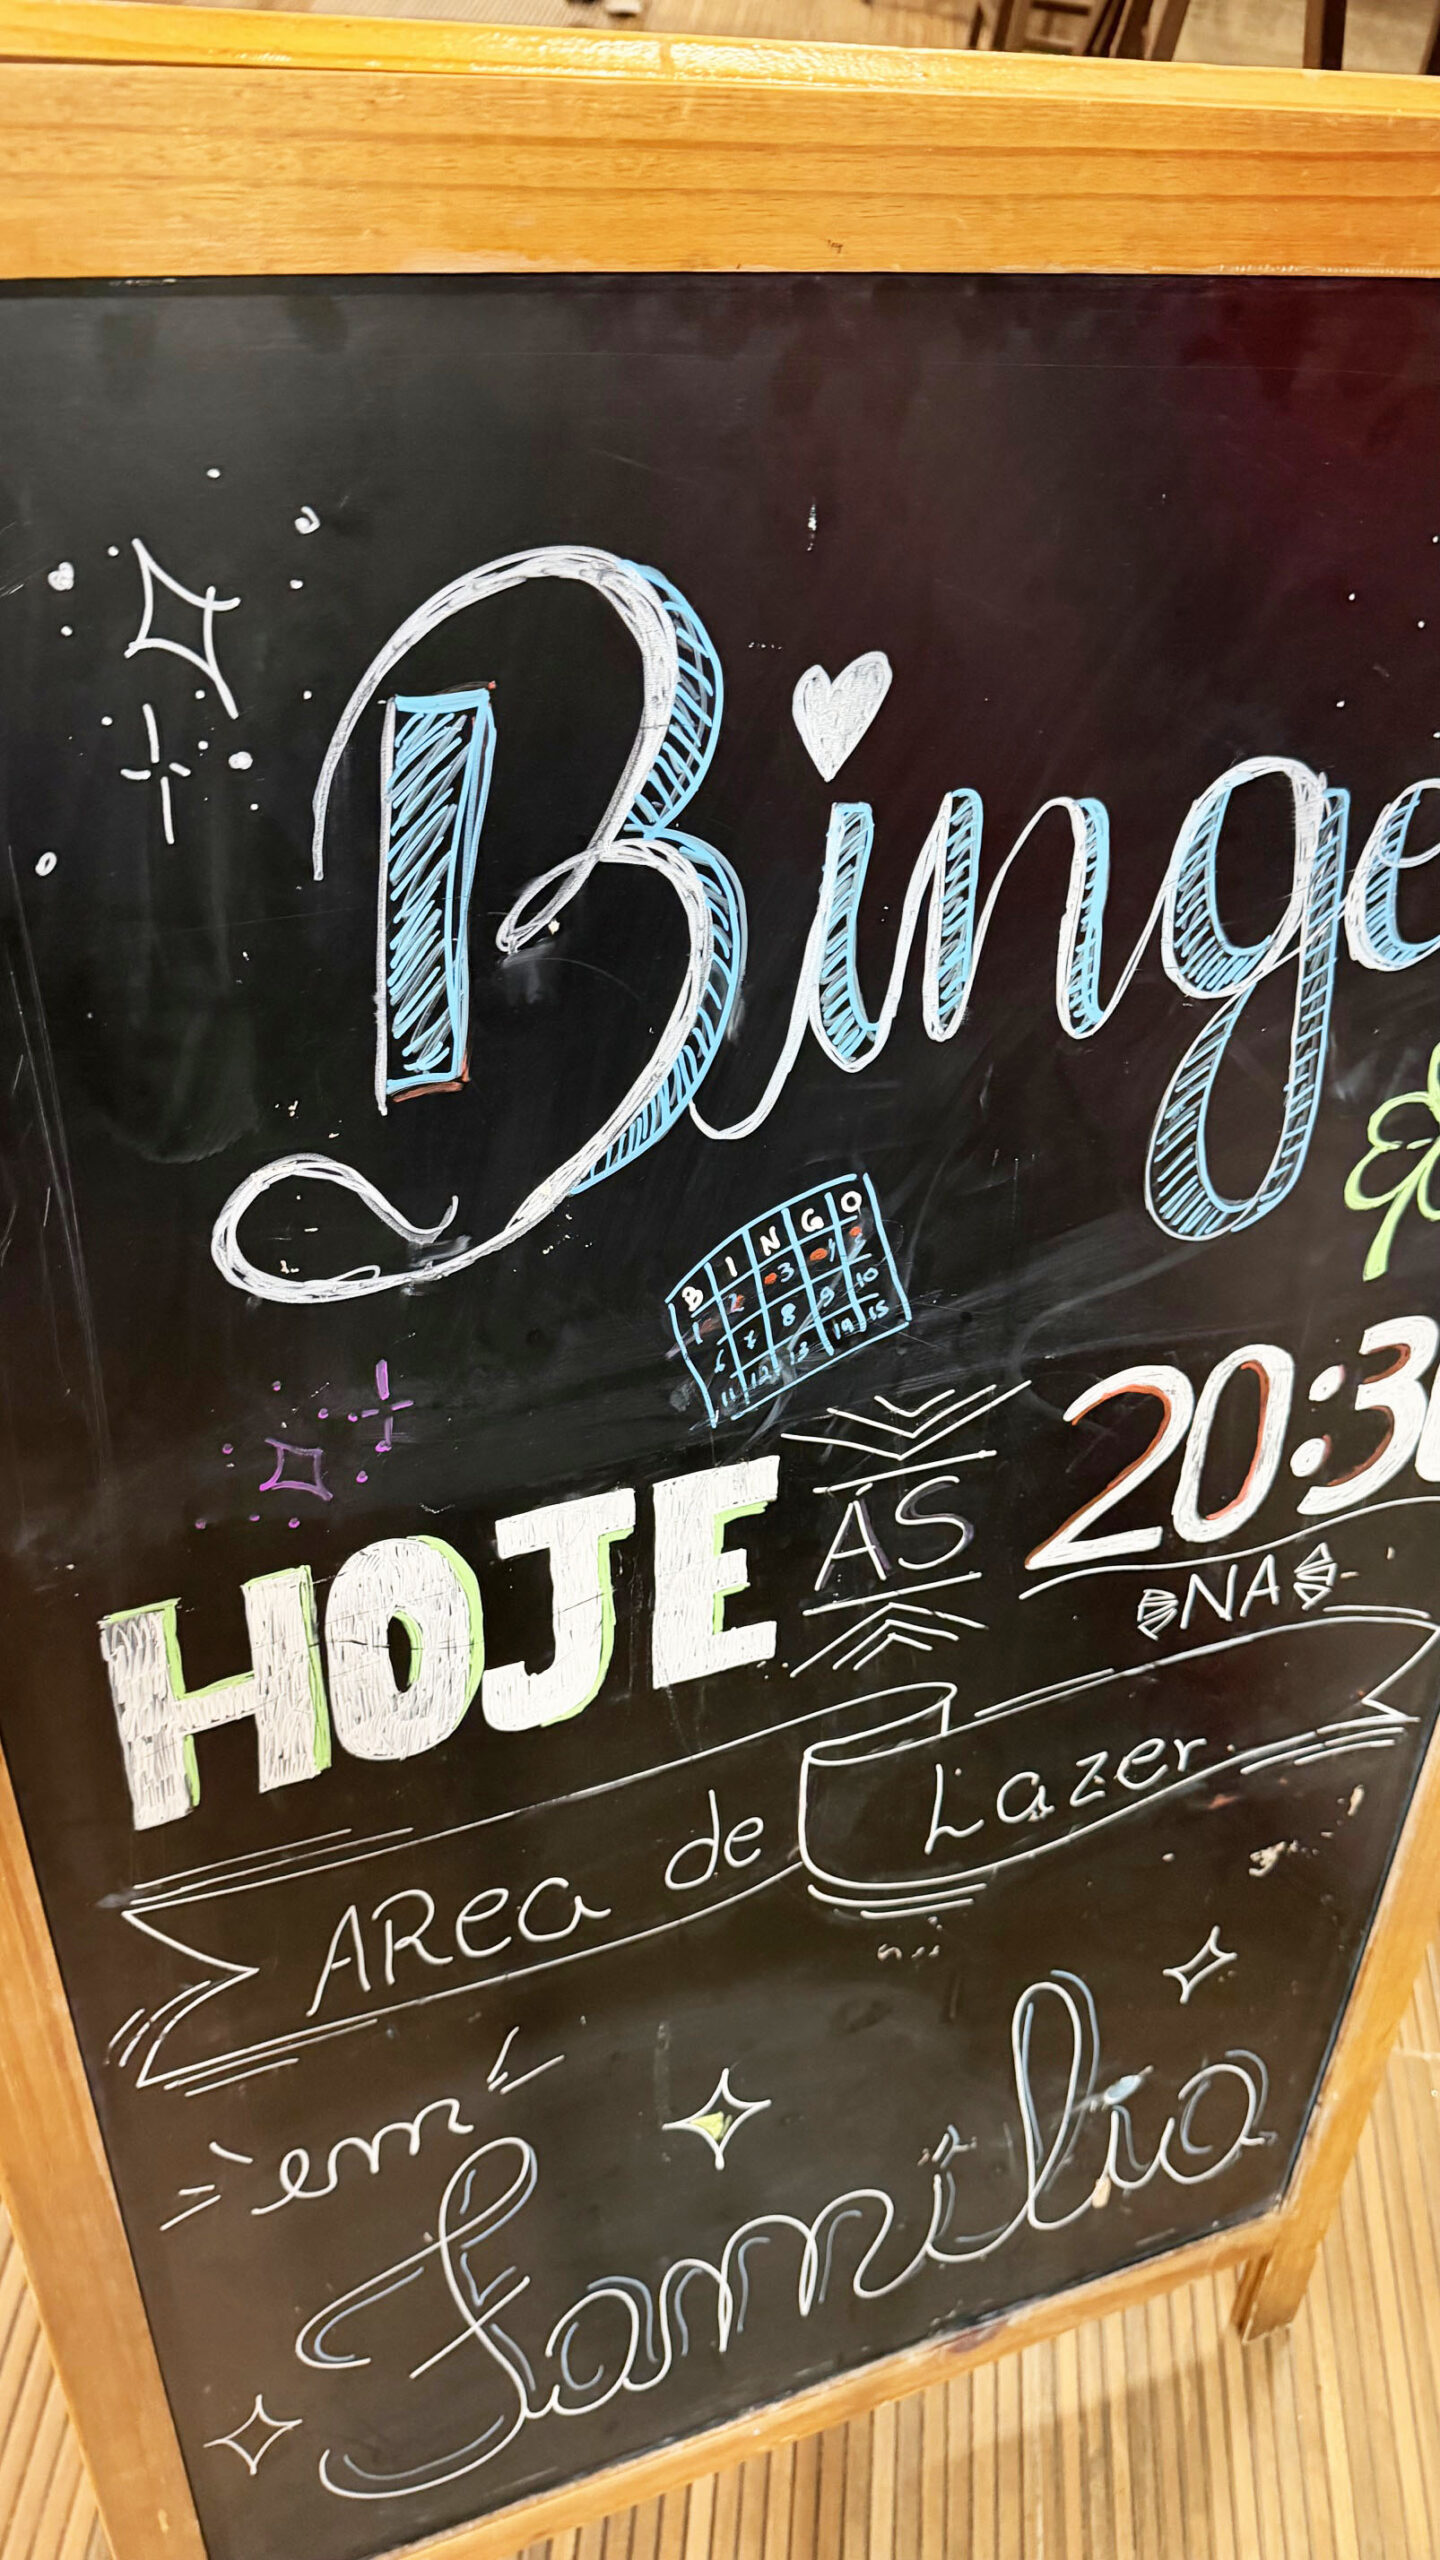 Bingo
B I N G O
1 2 3 4 5
6 7 8 9 10
11 12 13 14 15
HOJE ÁS 20:30
NA
AREA de Lazer
em
Família